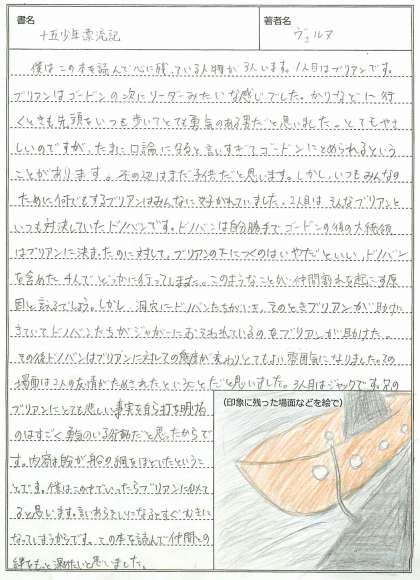 書名
著者名
十五少年漂流記
ヴェルヌ
僕はこの本を読んで心に残っている人物が3人います。1人目はブリアンです。
ブリアンはゴードンの次にリーダーみたいな感じでした。かりなどに行
くときも先頭をいつも歩いてとても勇気のある男だと思いました。とてもやさ
しいのですが、たまに口論になると言いすぎてゴードンにとめられるという
ことがあります。その辺はまだ子供だと思います。しかし、いつもみんなの
ために何でもするブリアンはみんなに好かれていました。2人目は、そんなブリアンと
いつも対決していたドノバンです。ドノバンは自分勝手で、ゴードンの後の大統領
はブリアンに決まったのに対して、ブリアンの下につくのはいやだといい、ドノバン
を含めた4人でどこかに行ってしまった。このようなことが仲間割れを起こす原
因と言えるでしょう。しかし、洞穴にドノバンたちがいき、そのときブリアンが助けに
きていてドノバンたちがジャガーにおそわれているのをブリアンが助けた。
その後ドノバンはブリアンに対しての態度が変わりとてもよい雰囲気になりました。この
場面は2人の友情がためされたということだと思いました。3人目はジャックです。兄の
ブリアンにとても悲しい事実を自ら打ち明ける
のはすごく勇気のいる行動だと思ったからで
す。内容は船の綱をほどいたというこ
とです。僕はこの中でいったらブリアンににて
ると思います。言いあらそいになるとすぐむきに
なってしまうからです。この本を読んで仲間との
絆をもっと深めたいと思いました。
(印象に残った場面などを絵で)